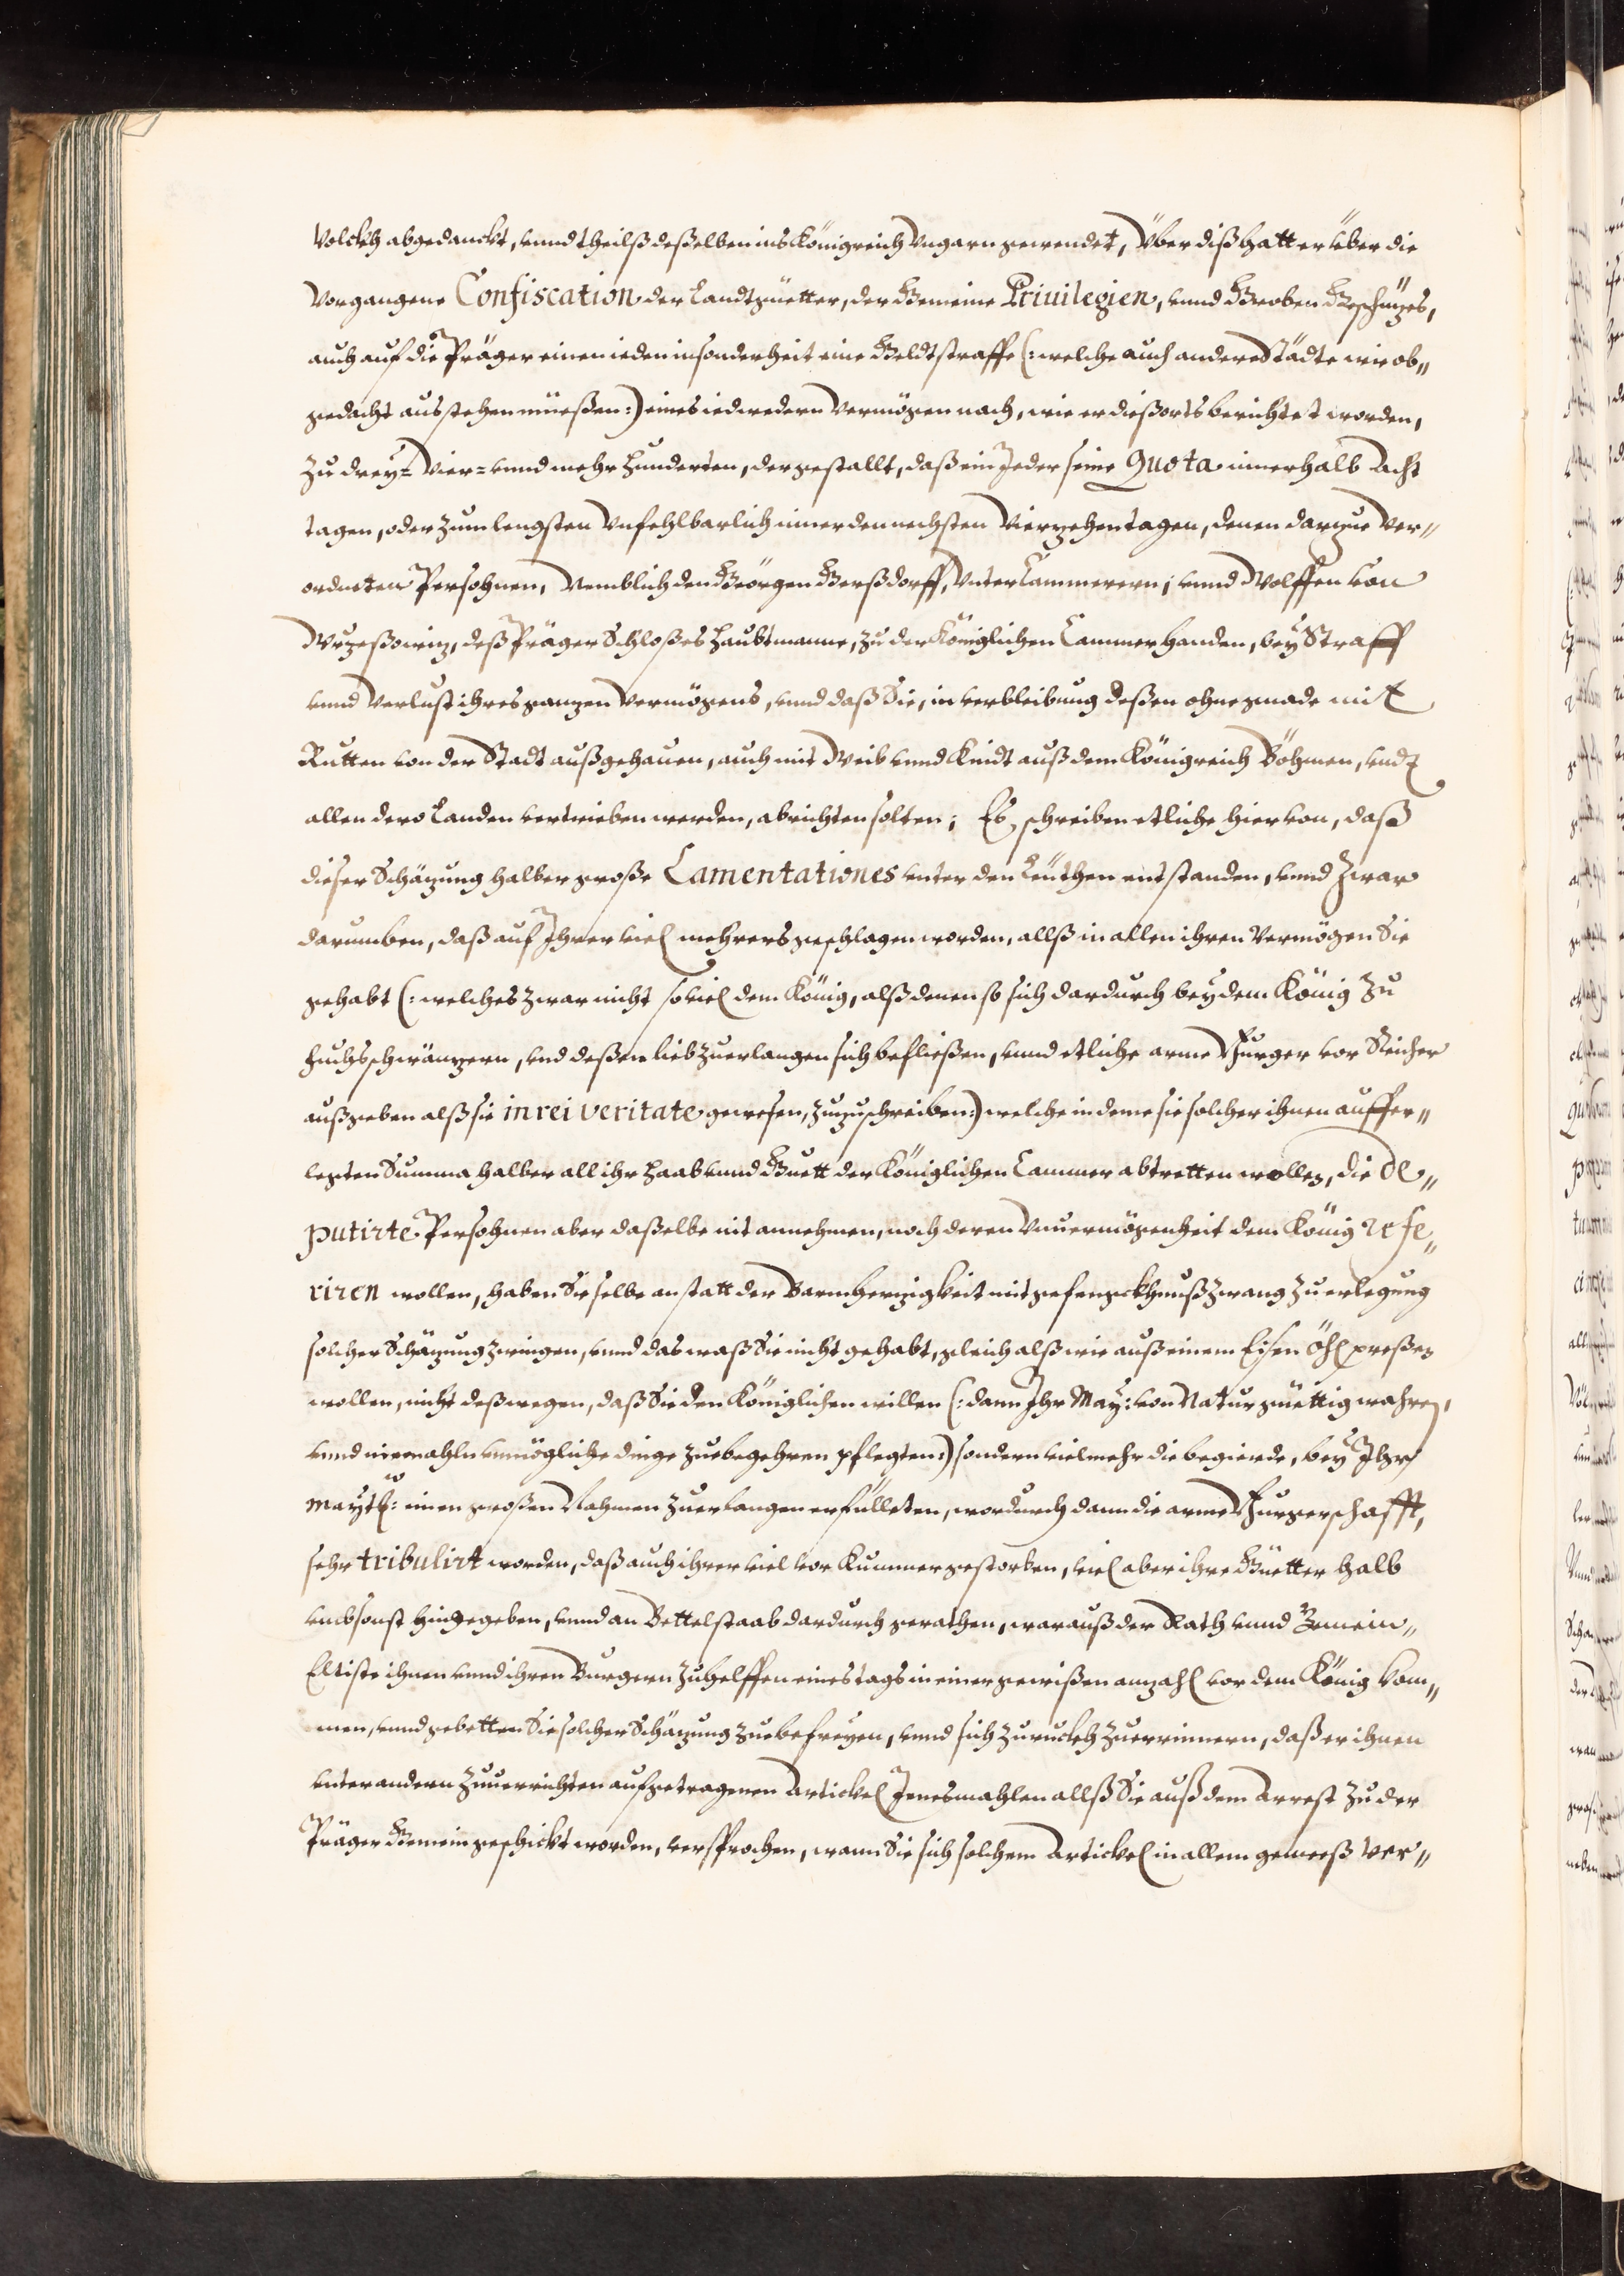 Volckh abgedanckt, vnnd theilß deßelben ins Königreich Vngarn gewendet, Über diß hatt er über die
Vorgangene Confiscation der Landtgüetter, der Gemeine Priuilegien, vnnd Groben Geschüzes,
auch auf die Präger einen ieden insonderheit eine Geldtstraffe (: welche auch andere Städte wie ob„
gedacht ausstehen müeßen :) eines iedwedern Vermögen nach, wie er dießorts berichtet worden,
Zu drey= Vier= vnnd mehr Hunderten, dergestallt, daß ein Jeder seine Quota innerhalb Acht
tagen, oder zum lengsten Vnfehlbarlich inner den nechsten Vierzehen tagen, denen darzue Ver„
ordneten Persohnen, Nemblich den Geörgen Gerßdorff, Vnter Cammerern, vnnd Wolffen von
Wrzeßowiz, deß Präger Schloßes Haubtmanne, zu der Königlichen Cammer handen, bey Straff
vnnd Verlust ihres ganzen Vermögens, vnnd daß Sie, in verbleibung deßen ohne gnade mit
Rutten von der Stadt außgehauen, auch mit Weib vnnd Kindt auß dem Königreich Böhmen, vndt
allen dero Landen vertrieben werden, abrichten solten; Es schreiben etliche hiervon, daß
dieser Schäzung halber große Lamentationes vnter den Leüthen entstanden, vnnd Zwar
darumben, daß auf Ihrer viel mehrers geschlagen worden, allß in allen ihren Vermögen Sie
gehabt (: welches zwar nicht soviel dem König, alß denen so sich dardurch bey dem König zu
fuchsschwänzern, vnd deßen lieb zuerlangen sich befließen, vnnd etliche arme Burger vor Reicher
außgeben alß sie in rei veritate gewesen, zuzuschreiben :) welche in deme sie solcher ihnen auffer„
legten Summa halber all ihr Haab vnnd Guett der Königlichen Cammer abtretten wollen, die de„
putirte Persohnen aber daßelbe nit annehmen, noch deren Vnuermögenheit dem König refe„
riren wollen, haben Sie selbe anstatt der Barmherzigkeit mit gefengckhnuß Zwang zu erlegung
solcher Schäzung zwingen, vnnd das waß Sie nicht gehabt, gleich alß wie auß einem Eisen Öhl preßen
wollen, nicht deßwegen, daß Sie den Königlichen willen (: dann Ihr May: von Natur güettig wahren,
vnnd niemahln vnmögliche dinge zuebegehren pflegten :) sondern vielmehr die begierde, bey Ihr
Maytt: einen großen Nahmen zuerlangen erfülleten, wordurch dann die arme Burgerschafft,
sehr tribulirt worden, daß auch ihrer viel vor Kummer gestorben, viel aber ihre Güetter halb
vmbsonst hingegeben, vnnd an Bettelstaab dardurch gerathen, warauß der Rath vnnd Gemein„
Eltiste ihnen vnnd ihren Burgern zuhelffen eines tags in einer gewißen anzahl vor dem König kom„
men, vnnd gebetten Sie solcher Schäzung zuebefreyen, vnnd sich zuruckh zuerrinnern, daß er ihnen
vnter andern zuuerrichten aufgetragenen Artickel Jenesmahlen allß Sie auß dem Arrest zu der
Präger Gemein geschickt worden, versprochen, wann Sie sich solchem Artickel in allem gemeeß ver„